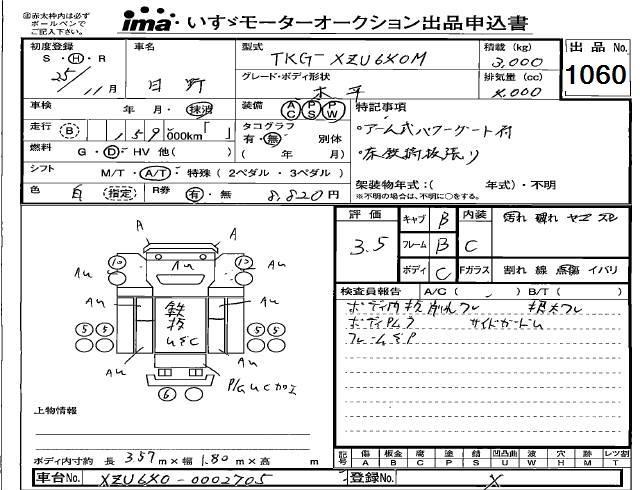 ※赤太枠内は必ず
ボールペンで
ご記入下さい。
ima いすゞモーターオークション出品申込書
初度登録
S・H・R
25/11月
車名
日野
型式
TKG-XZU640M
積載 (kg)
3,000
出品No.
1060
グレード・ボディ形状
木平
排気量 (cc)
4,000
車検
年 月・抹消
装備 AC PS PW
特記事項
・アーム式パワーゲート付
・床鉄縞板張り
走行 B 159,000km「 」
タコグラフ
有・無 別体
( 年 月)
燃料
G・D・HV 他( )
シフト
M/T・A/T・特殊 ( 2ペダル・3ペダル )
架装物年式:( 年式)・不明
※不明の場合は、不明に○をする。
色 白 (指定) R券 有・無 8,820円
評価
3.5
キャブ B
フレーム B
ボディ C
内装
C
Fガラス
汚れ 破れ ヤニ スレ
割れ 線 点傷 イバリ
検査員報告 A/C ( ) B/T ( )
ボディ内板削れフレ
サイドガードU
フレームSP
A A
10 10
Au Au Au
Au Au
鉄板
USC
5 5 5 5
Au Au
6
P/G UC 加工
上物情報
ボディ内寸約 長 3.57m×幅 1.80m×高 m
記号 傷 A 板金 B 腐 C 塗 P 錆 S 凹凸曲 U 波 W 穴 H 跡 M レンズ割 T
車台No. XZU640-0002705 登録No. X